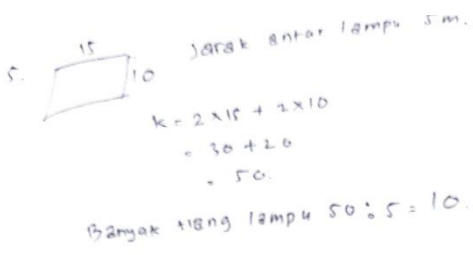 5.
15
10
Jarak antar lampu 5 m.
K = 2 x 15 + 2 x 10
= 30 + 20
= 50.
Banyak tiang lampu 50 : 5 = 10.